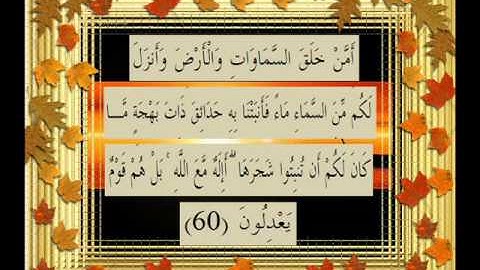 أَمَّنْ خَلَقَ السَّمَاوَاتِ وَالْأَرْضَ وَأَنزَلَ
لَكُم مِّنَ السَّمَاءِ مَاءً فَأَنبَتْنَا بِهِ حَدَائِقَ ذَاتَ بَهْجَةٍ مَّا
كَانَ لَكُمْ أَن تُنبِتُوا شَجَرَهَا ۗ أَإِلَٰهٌ مَّعَ اللَّهِ ۚ بَلْ هُمْ قَوْمٌ
يَعْدِلُونَ (60)